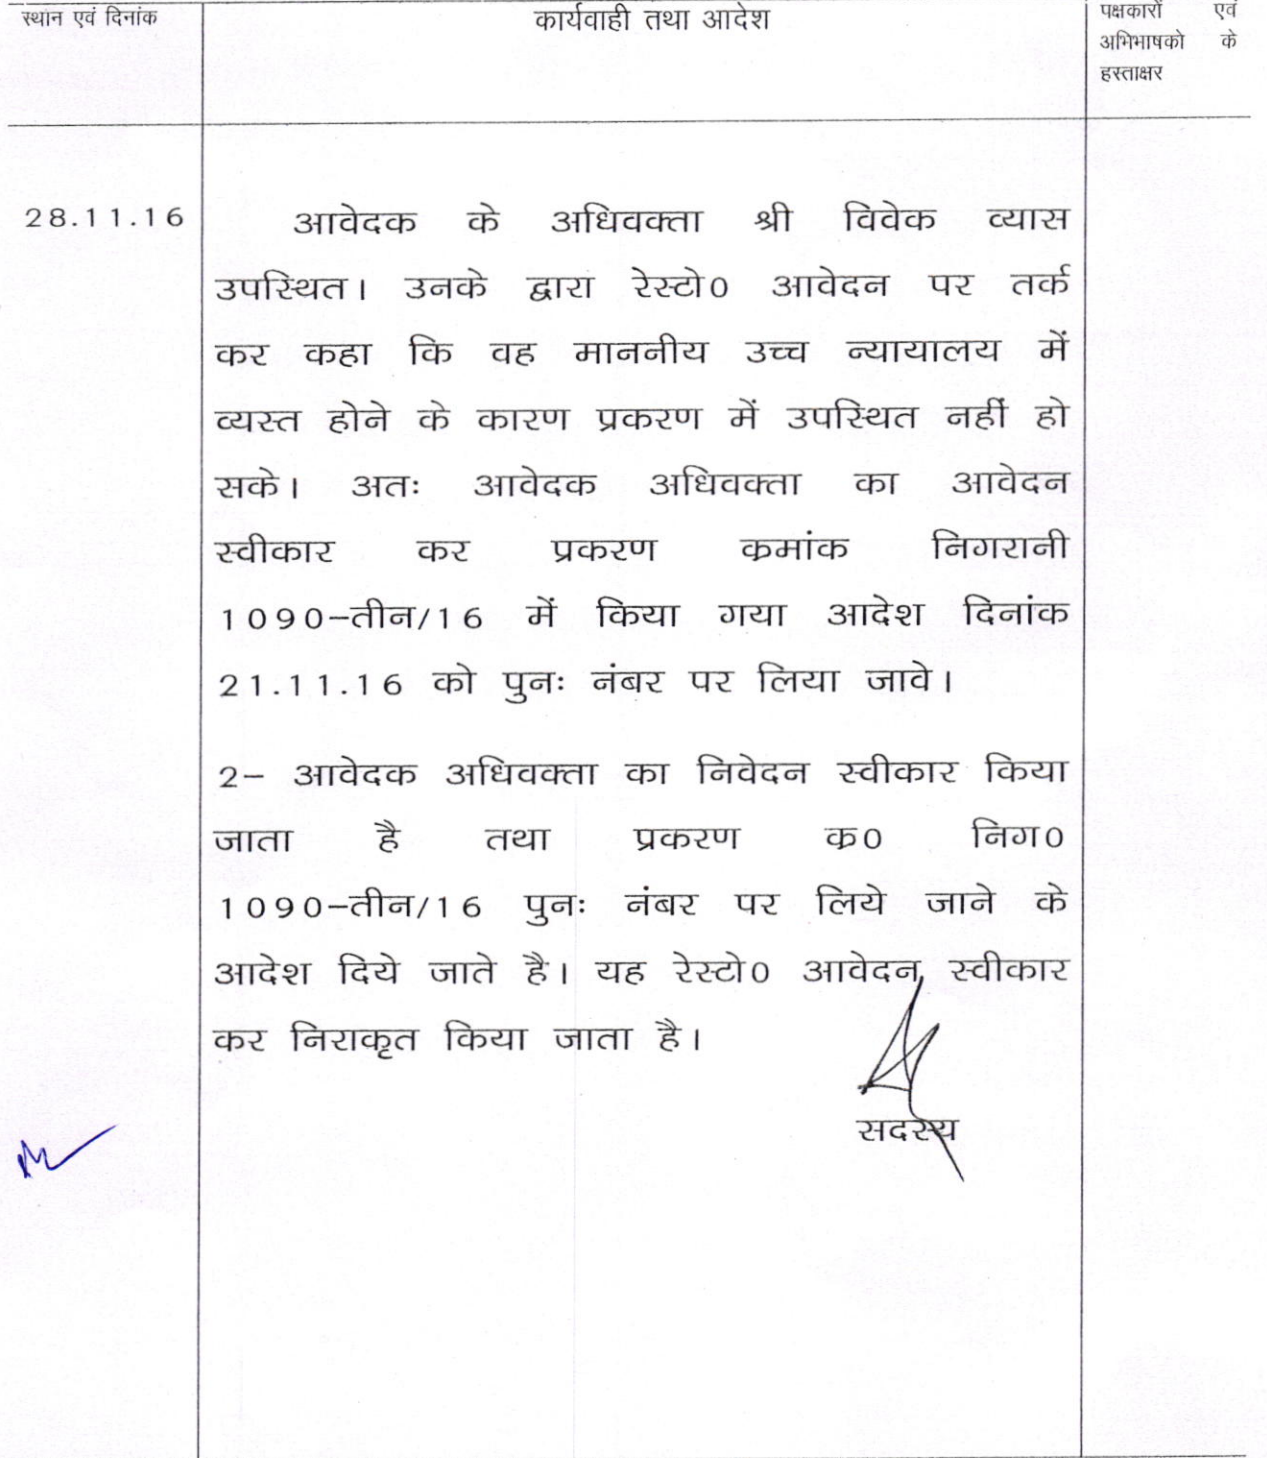 स्थान एवं दिनांक
कार्यवाही तथा आदेश
पक्षकारों एवं
अभिभाषको के
हस्ताक्षर
28.11.16
आवेदक के अधिवक्ता श्री विवेक व्यास
उपस्थित। उनके द्वारा रेस्टो0 आवेदन पर तर्क
कर कहा कि वह माननीय उच्च न्यायालय में
व्यस्त होने के कारण प्रकरण में उपस्थित नहीं हो
सके। अतः आवेदक अधिवक्ता का आवेदन
स्वीकार कर प्रकरण क्रमांक निगरानी
1090-तीन/16 में किया गया आदेश दिनांक
21.11.16 को पुनः नंबर पर लिया जावे।
2- आवेदक अधिवक्ता का निवेदन स्वीकार किया
जाता है तथा प्रकरण क्र0 निग0
1090-तीन/16 पुनः नंबर पर लिये जाने के
आदेश दिये जाते है। यह रेस्टो0 आवेदन स्वीकार
कर निराकृत किया जाता है।
सदस्य